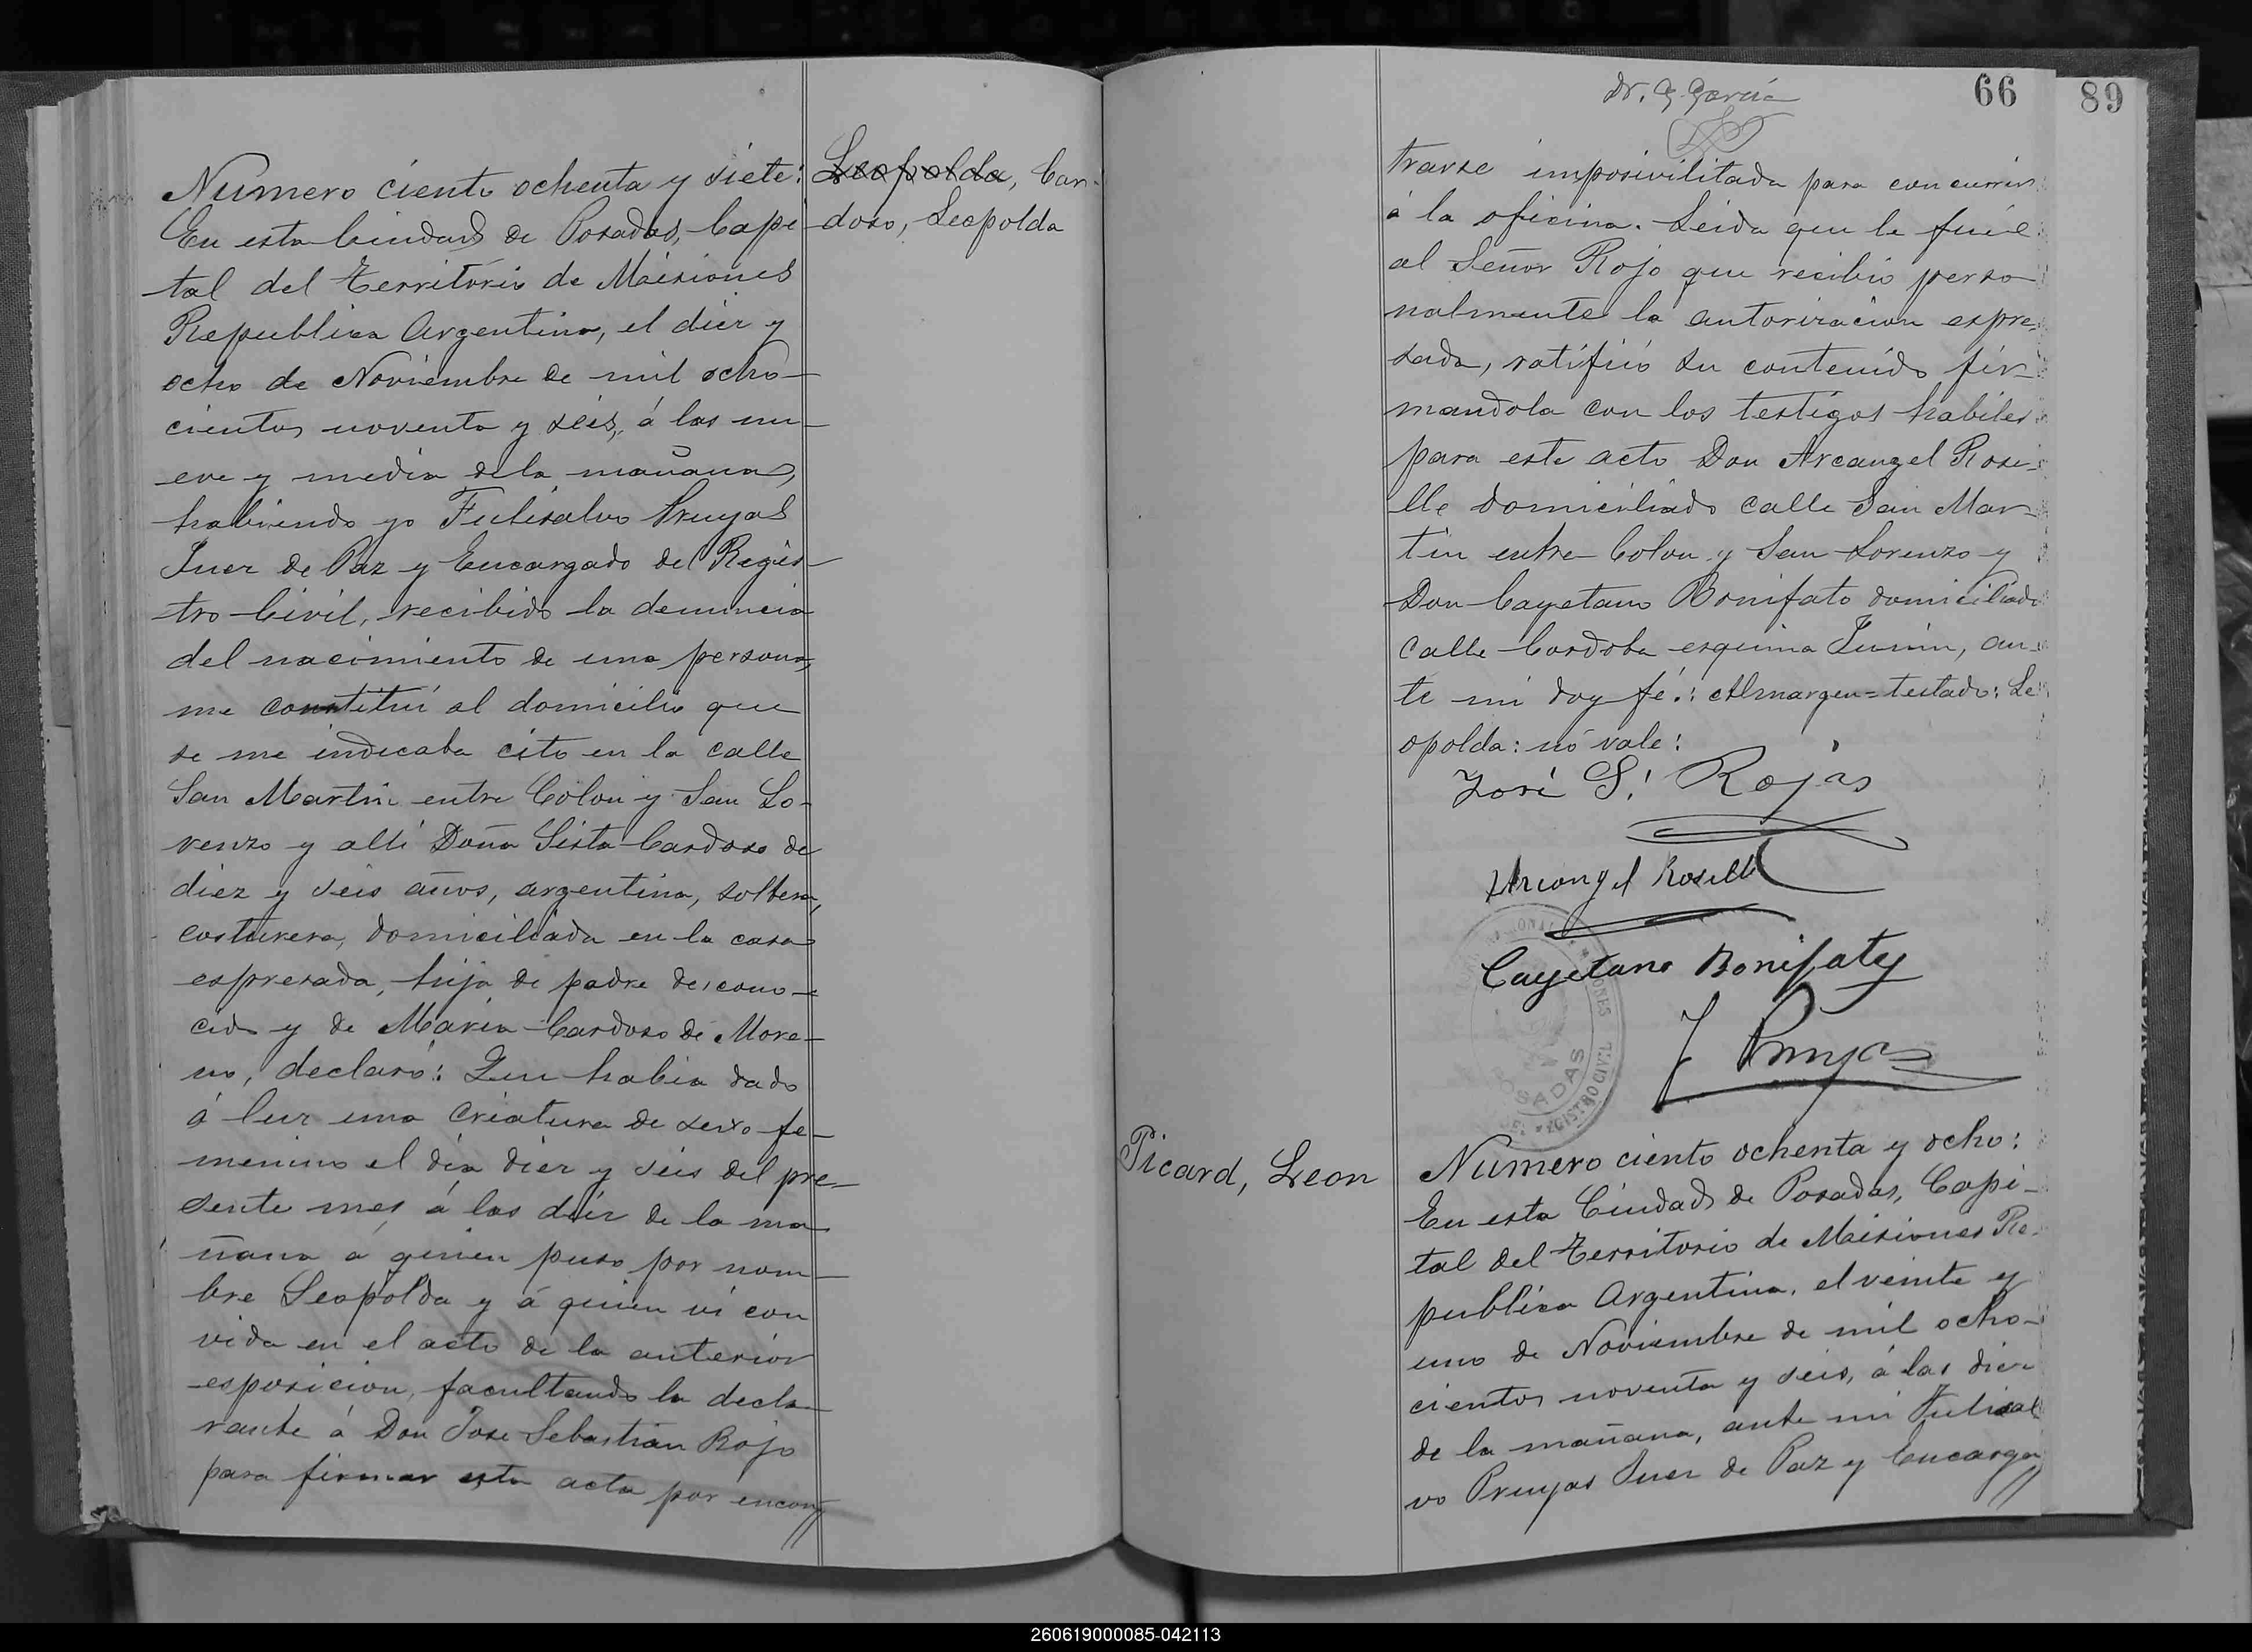 Numero ciento ochenta y siete:
En esta Ciudad de Posadas, Capi
tal del Territorio de Misiones
Republica Argentina, el diez y
ocho de Noviembre de mil ocho-
cientos noventa y seis, á las nu-
eve y media dela mañana,
habiendo yo Fulisalvo Pruyas
Juez de Paz y Encargado del Regis-
tro Civil, recibido la denuncia
del nacimiento de una persona,
me constituí al domicilio que
se me indicaba cito en la calle
San Martin entre Colon y San Lo-
renzo y alli Doña Sista Cardoso de
diez y seis años, argentina, soltera,
costurera, domiciliada en la casa
espresada, hija de padre descono-
cido y de Maria Cardoso de More-
no, declaró: Que habia dado
á luz una criatura de sexo fe-
menino el dia diez y seis del pre-
sente mes á las diez de la ma
ñana á quien puso por nom-
bre Leopolda y á quien vi con
vida en el acto de la anterior
esposicion, facultando la decla-
rante á Don Jose Sebastian Rojo
para firmar esta acta por encon
Leopolda, Car-
doso, Leopolda
Dr. G. García
66
89
trarse imposivilitada para concurrir
á la oficina. Leida que le fué
al Señor Rojo que recibió perso
nalmente la autorizacion espre-
sada, ratifició su contenido fir-
mandola con los testigos habiles
para este acto Don Arcangel Rose-
lle domiciliado calle San Mar-
tin entre Colon y San Lorenzo y
Don Cayetano Bonifato domiciliado
calle Cordoba esquina Junin, an-
te mi doy fé.: Almargen=testado: Le
opolda: nó vale:
José S. Rojas
Arcangel Roselli
Cayetano Bonifaty
F Pruyas
POSADAS
REGISTRO CIVIL
Picard, Leon
Numero ciento ochenta y ocho:
En esta Ciudad de Posadas, Capi-
tal del Territorio de Misiones Re-
publica Argentina, el veinte y
uno de Noviembre de mil ocho-
cientos noventa y seis, á las diez
de la mañana, ante mi Fulisal
vo Pruyas Juez de Paz y Encarga
260619000085-042113